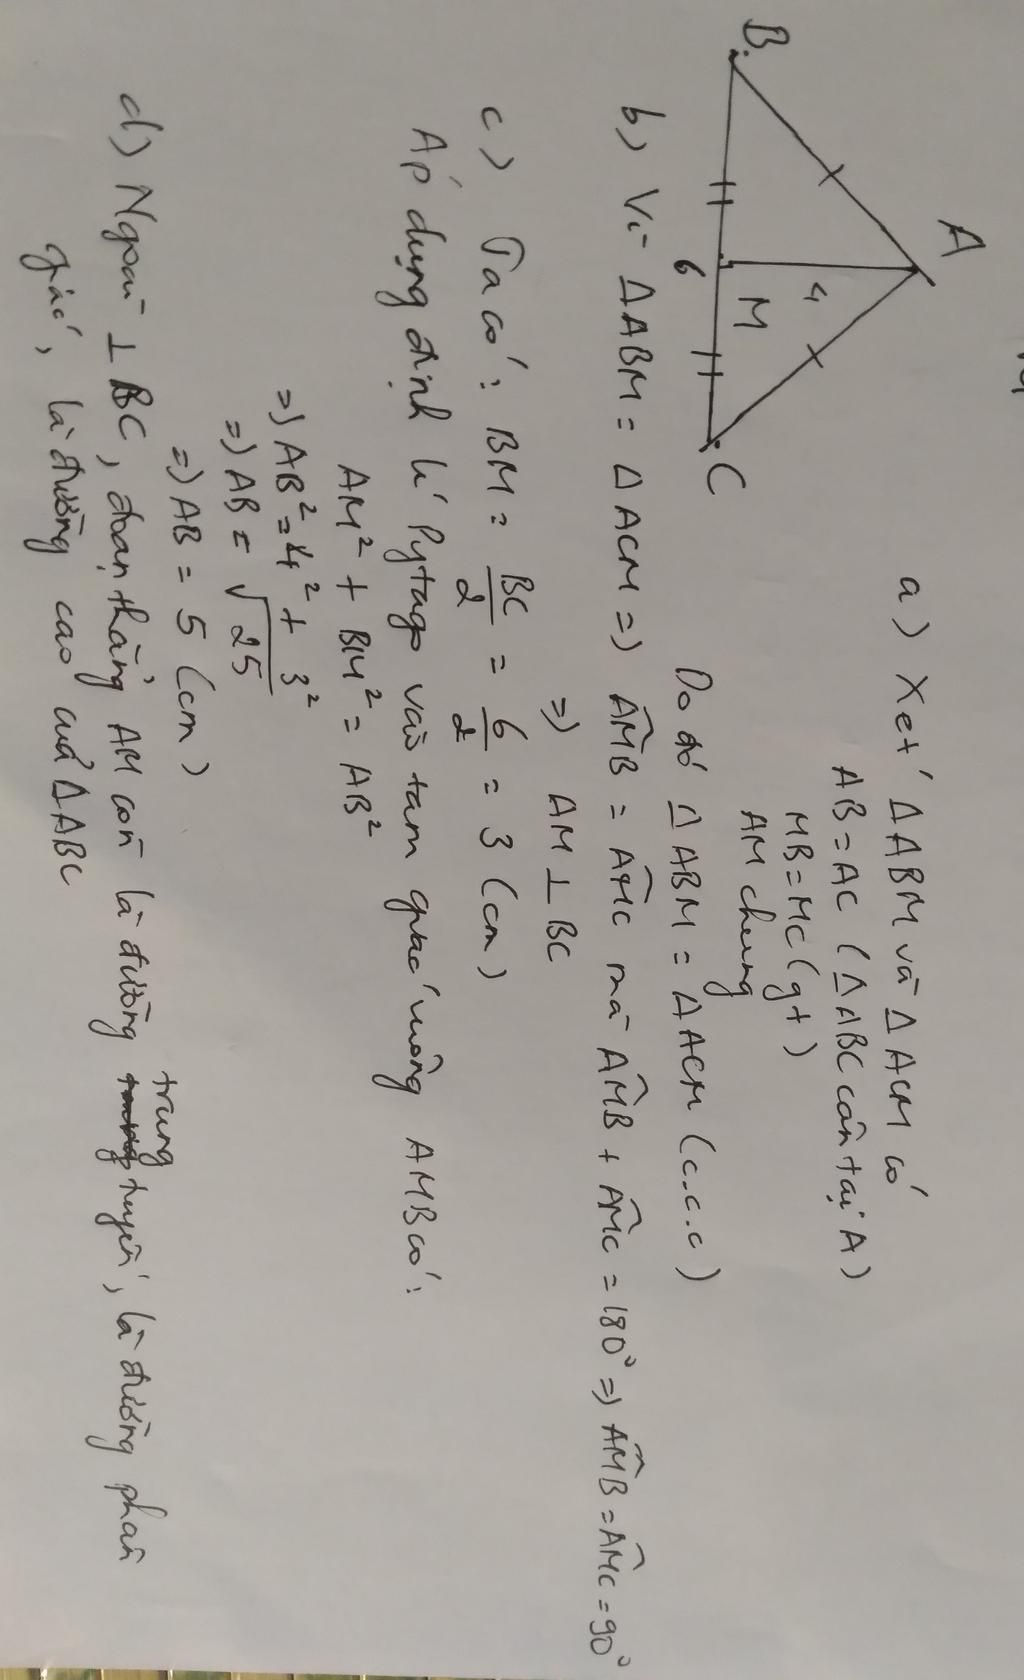 A
B
C
M
4
6
a) Xét ΔABM và ΔACM có
AB = AC (ΔABC cân tại A)
MB = MC (gt)
AM chung
Do đó ΔABM = ΔACM (c.c.c)
b) Vì ΔABM = ΔACM => AMB^ = AMC^ mà AMB^ + AMC^ = 180° => AMB^ = AMC^ = 90°
=> AM ⊥ BC
c) Ta có: BM = BC/2 = 6/2 = 3 (cm)
Áp dụng định lí Pytago vào tam giác vuông AMB có:
AM² + BM² = AB²
=> AB² = 4² + 3²
=> AB = √25
=> AB = 5 (cm)
d) Ngoài ⊥ BC, đoạn thẳng AM còn là đường trung tuyến, là đường phân
giác, là đường cao của ΔABC